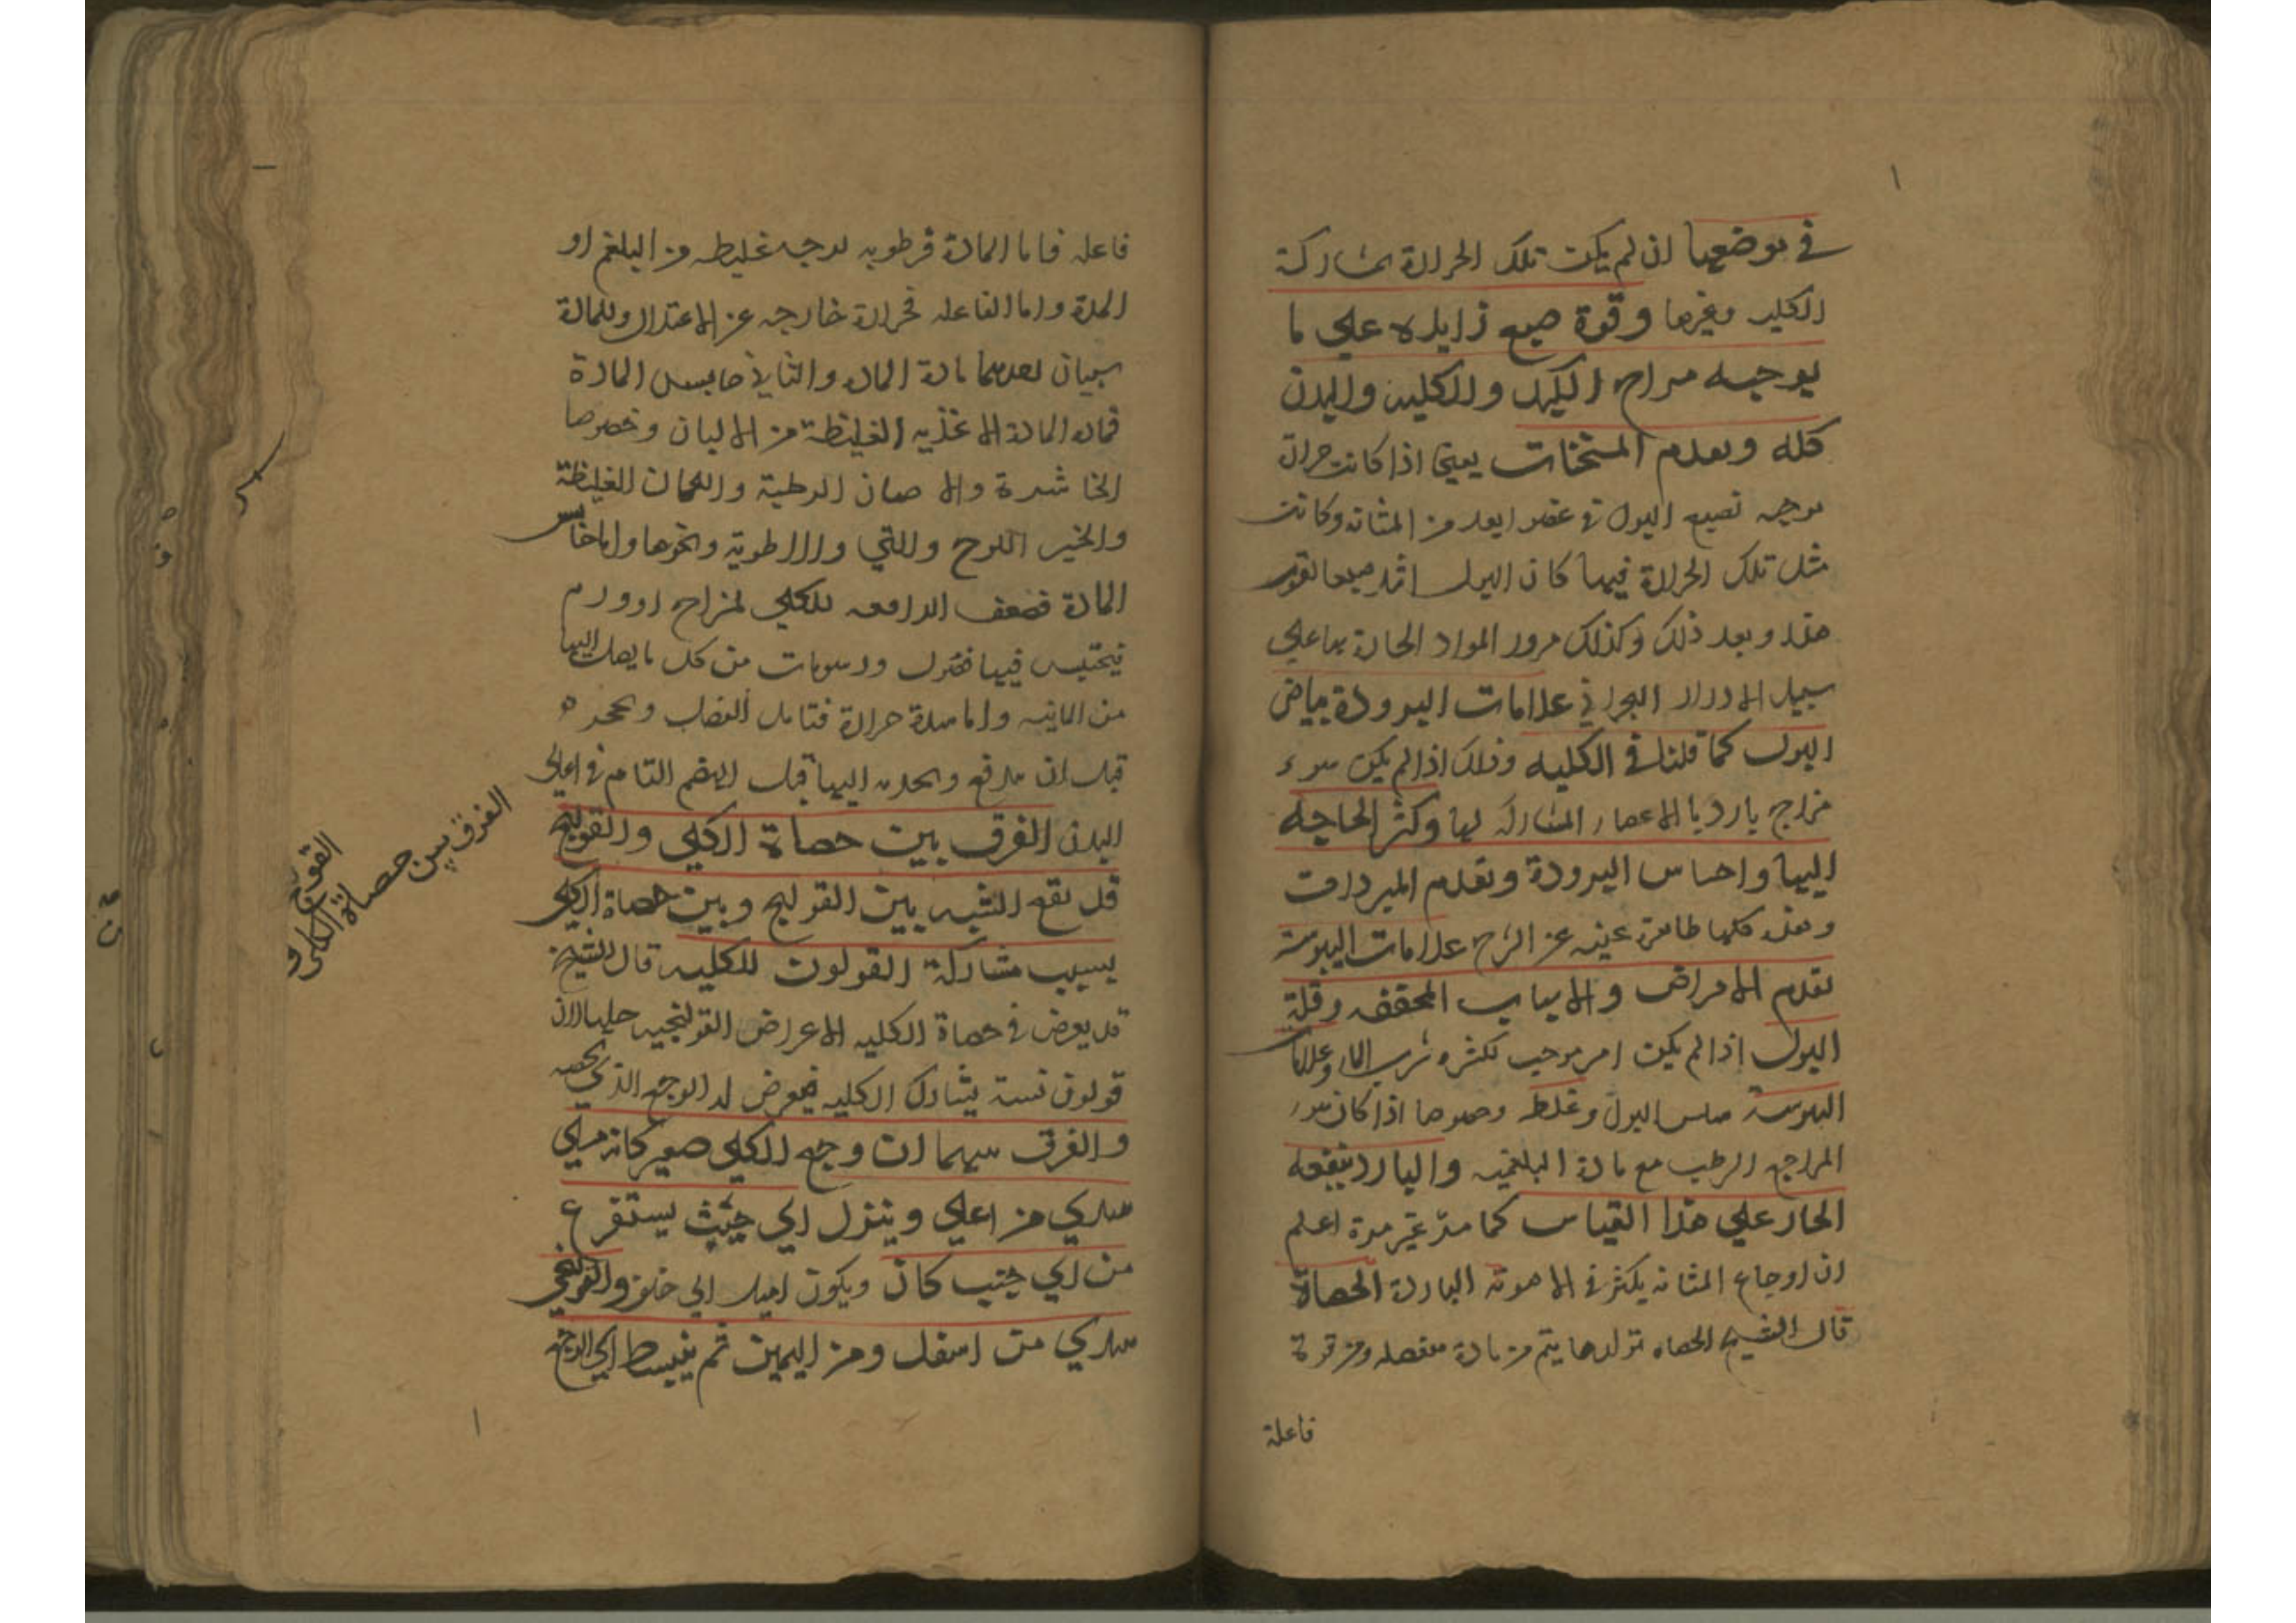 في موضعها ان لم يكن تلك الحرارة بمشاركة
الكليه وغيرها وقوة صبغ زايده علي ما
يوجبه مزاج الكبد والكلية والبدن
كله وتقدم المسخنات يعني اذا كانت حرارة
توجب تصبيغ البول في عضو ابعد من المثانه وكانت
مثل تلك الحرارة فيها كان البول اشد صبغا
هذا وبعد ذلك وكذلك مرور المواد الحادة بها علي
سبيل الادرار البحراني علامات البرودة بياض
البول كما قلنا في الكليه وذلك اذا لم يكن سوء
مزاج بارد بالاعضاء المشاركة لها وكثر الحاجه
اليها واحساس البرودة وتقدم المبردات
وهذه كلها ظاهرة غنيه عن الشرح علامات اليبوسة
تقدم الامراض والاسباب المجففه وقلة
البول اذا لم يكن امر موجب لكثره شرب الماء وعلامات
البول وغلظه وخصوصا اذا كان سوء
المزاج الرطب مع مادة البلغميه والبارد ينفعه
الحار علي هذا القياس كما مر غير مرة اعلم
ان اوجاع المثانه يكثر في الاهوية الباردة الحصاة
قال الشيخ الحصاه تولدها يتم من مادة منفعله ومن قوة
فاعلة
فاعله فاما المادة فرطوبه لزجه غليظه من البلغم او
المدة واما الفاعله فحرارة خارجه عن الاعتدال وللمادة
سببان احدهما مادة المادة والثاني حابس المادة
فمادة المادة الاغذيه الغليظة من الالبان وخصوصا
الخاثرة والاجبان الرطبة واللحمان الغليظة
والخبز اللزج والني ونحوها واما حابس
المادة فضعف الدافعه للكلي لمزاج او ورم
فيحتبس فيها فضول ورسوبات من كل ما يصل اليها
من المائيه واما شدة حرارة فتامل الفضل وتحجره
قبل ان يندفع اليها قبل الهضم التام في اعالي
البدن الفرق بين حصاة الكلي والقولنج
قد يقع الشبه بين القولنج وبين حصاة الكلي
بسبب مشاركة القولون للكليه قال الشيخ
قد يعرض في حصاة الكليه الاعراض القولنجيه
قولون نفسه يشارك الكليه فيعرض له الوجع الذي يخصه
والفرق بينهما ان وجع الكلي صغير كانه سلي
يبتدي من اعلي وينزل الي حيث يستقر
من اي جنب كان ويكون اميل الي خلف والقولنجي
يبتدي من اسفل ومن اليمين ثم ينبسط الي
الفرق بين حصاة الكلي و
القولنج